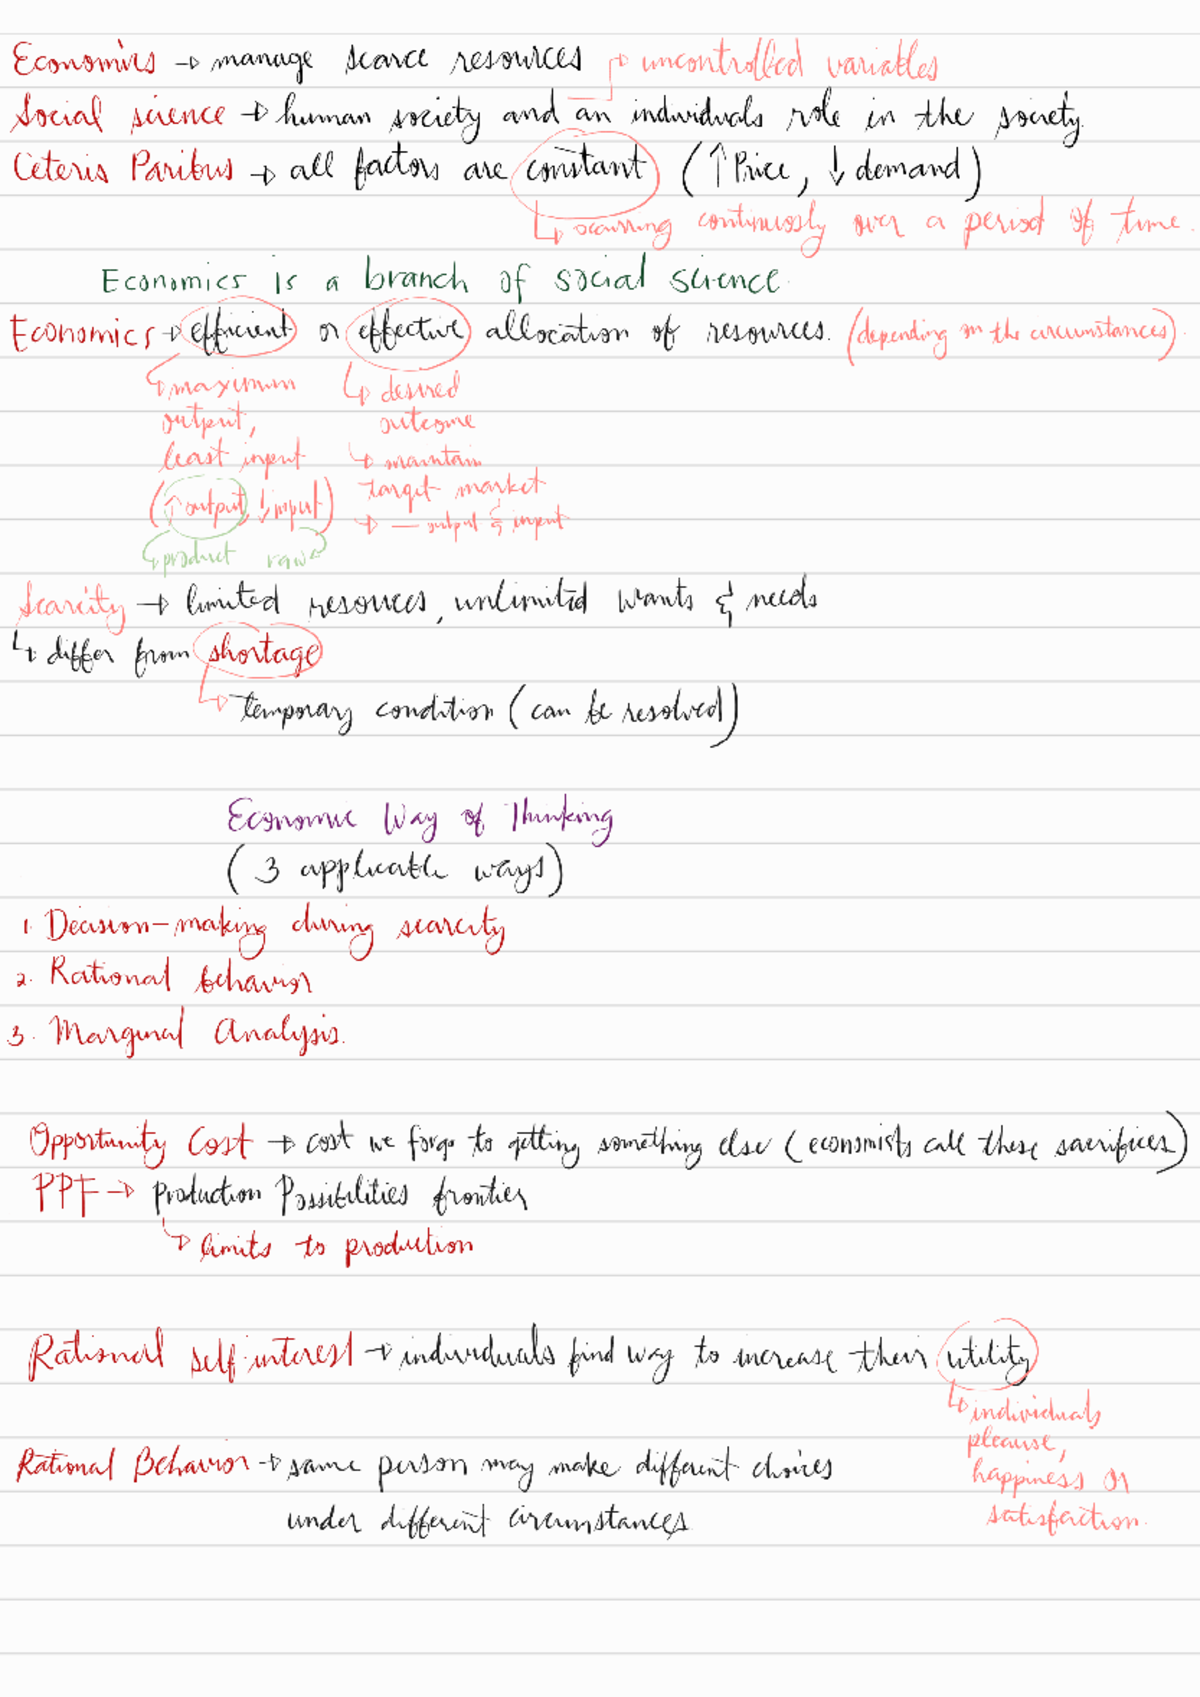 Economics → manage scarce resources → uncontrolled variables
Social science → human society and an individuals role in the society.
Ceteris Paribus → all factors are constant (↑ Price, ↓ demand)
↳ occurring continuosly over a period of time.
Economics is a branch of social science.
Economics → efficient or effective allocation of resources. (depending on the circumstances).
↳ maximum ↳ desired
output, outcome
least input ↳ maintain
(↑ output, ↓ input) target market
↳ — output & input
↳ product raw ↵
Scarcity → limited resources, unlimited wants & needs
↳ differ from shortage
↳ temporary condition (can be resolved)
Economic Way of Thinking
(3 applicable ways)
1. Decision-making during scarcity
2. Rational behavior
3. Marginal Analysis.
Opportunity Cost → cost we forgo to getting something else (economists call these sacrifices)
PPF → Production Possibilities frontier
↳ limits to production
Rational self-interest → individuals find way to increase their utility
↳ individuals
pleause,
Rational Behavior → same person may make different choices
happiness or
under different circumstances
satisfaction.